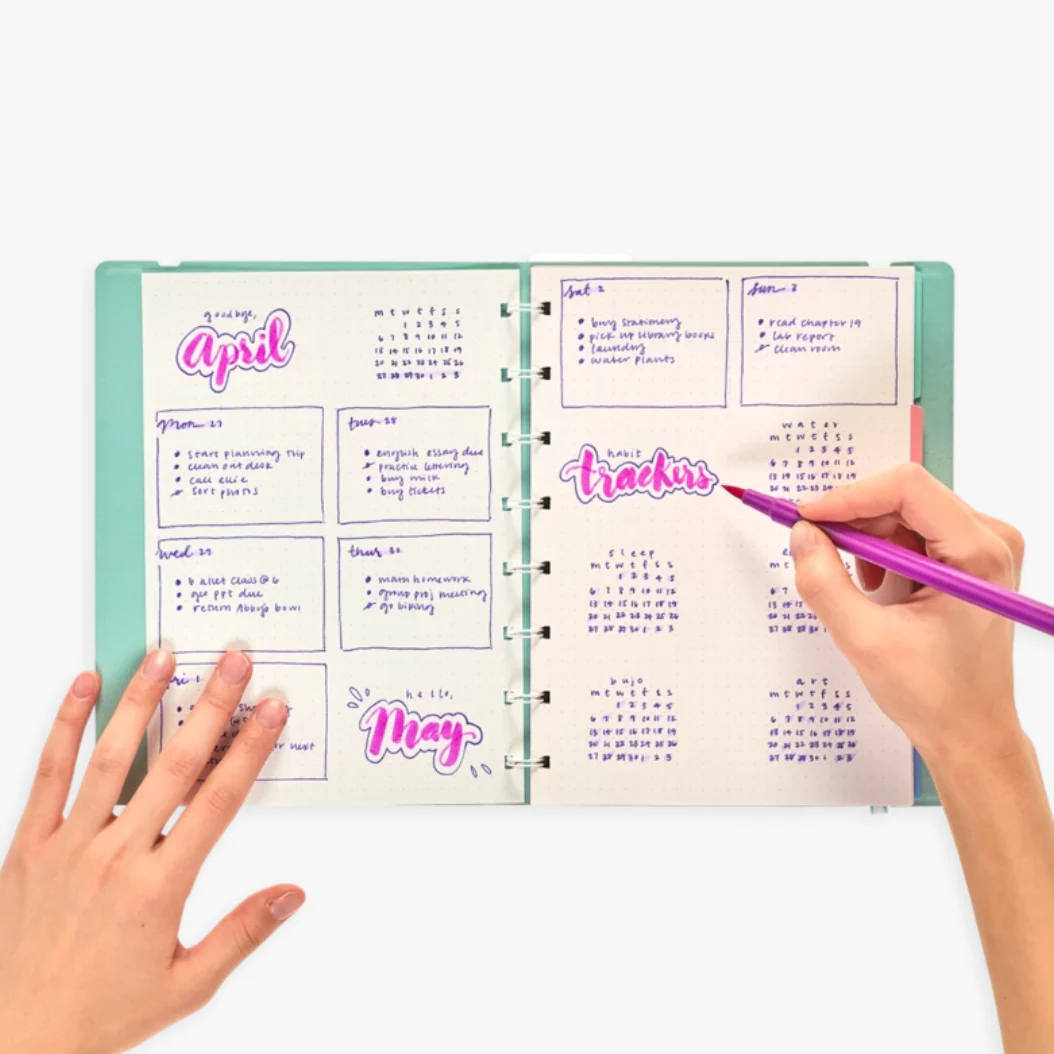 goodbye,
April
m t w t f s s
1 2 3 4 5
6 7 8 9 10 11 12
13 14 15 16 17 18 19
20 21 22 23 24 25 26
27 28 29 30 1 2 3
mon 27
start planning trip
clean out desk
call ellie
sort photos
tues 28
english essay due
practice lettering
buy milk
buy tickets
wed 29
ballet class @ 6
gov ppt due
return Abby's bowl
thur 30
math homework
group proj meeting
go biking
fri 1
next
hello,
May
sat 2
buy stationery
pick up library books
laundry
water plants
sun 3
read chapter 19
lab report
clean room
habit
trackers
water
m t w t f s s
1 2 3 4 5
6 7 8 9 10 11 12
13 14 15 16 17 18 19
20 21 22 23 24
sleep
m t w t f s s
1 2 3 4 5
6 7 8 9 10 11 12
13 14 15 16 17 18 19
20 21 22 23 24 25 26
27 28 29 30 1 2 3
m t w
6 7
13 14 15
20 21 22
27 28 29 30
bujo
m t w t f s s
1 2 3 4 5
6 7 8 9 10 11 12
13 14 15 16 17 18 19
20 21 22 23 24 25 26
27 28 29 30 1 2 3
art
m t w t f s s
1 2 3 4 5
6 7 8 9 10 11 12
13 14 15 16 17 18 19
20 21 22 23 24 25 26
27 28 29 30 1 2 3